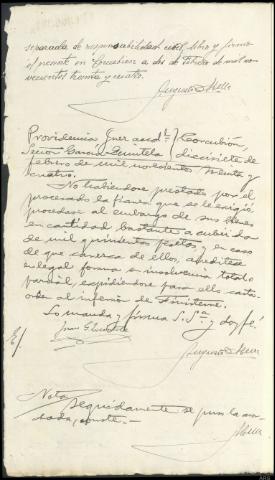 separada de responsabilidad civil, libro y firmo
el presente en Corcubion a dos de Febrero de mil no-
vecientos treinta y cuatro.
Augusto
Providencia Juez accdtl. } Corcubión,
Señor Garcia Quintela } diecisiete de
febrero de mil novecientos treinta y
cuatro.
No habiendose prestado por el
procesado la fianza que se le exigió
procedase al embargo de sus bienes
en cantidad bastante a cubrir la
de mil quinientas pesetas y en caso
de que carezca de ellos, acreditese
en legal forma su insolvencia total o
parcial, expidiendose para ello carta-
orden al inferior de Finisterre.
Lo manda y firma S. Sª. y doy fé.
E/
Augusto
Nota
Seguidamente se puso la acor-
dada, conste.-